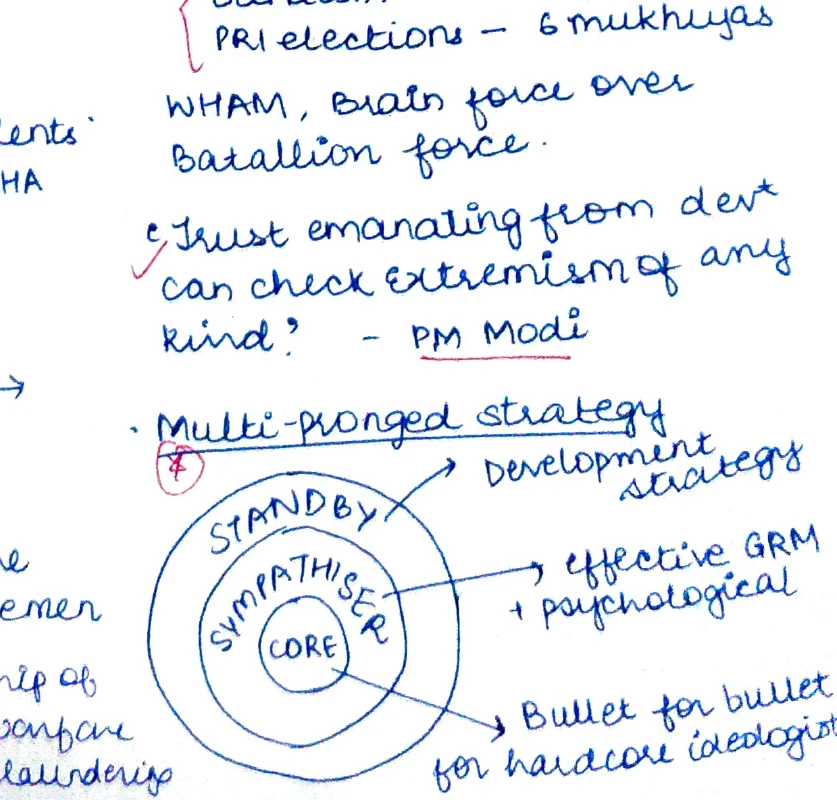 PRI elections - 6 mukhiyas
WHAM, Brain force over
Batallion force.
HA
"Trust emanating from devt
can check extremism of any
kind" - PM Modi
→
· Multi-pronged strategy
STANDBY
SYMPATHISER
CORE
Development
strategy
effective GRM
+ psychological
Bullet for bullet
for hardcore ideologist
of